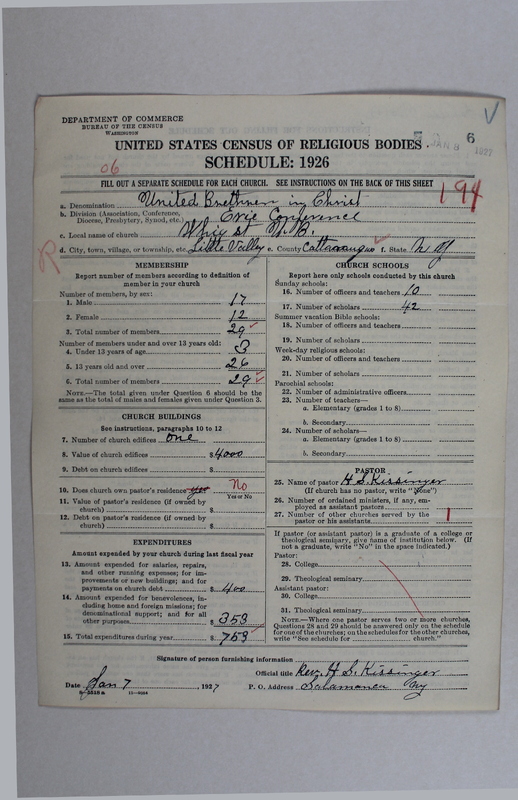 DEPARTMENT OF COMMERCE
BUREAU OF THE CENSUS
WASHINGTON
JAN 8 1927
6
UNITED STATES CENSUS OF RELIGIOUS BODIES
SCHEDULE: 1926
06
194
FILL OUT A SEPARATE SCHEDULE FOR EACH CHURCH. SEE INSTRUCTIONS ON THE BACK OF THIS SHEET
a. Denomination United Brethren in Christ
b. Division (Association, Conference, Diocese, Presbytery, Synod, etc.) Erie Conference
c. Local name of church St U.B.
d. City, town, village, or township, etc. Little Valley e. County Cattaraugus f. State N Y
R
MEMBERSHIP
Report number of members according to definition of
member in your church
Number of members, by sex:
1. Male 17
2. Female 12
3. Total number of members 29
Number of members under and over 13 years old:
4. Under 13 years of age 3
5. 13 years old and over 26
6. Total number of members 29
NOTE.—The total given under Question 6 should be the
same as the total of males and females given under Question 3.
CHURCH BUILDINGS
See instructions, paragraphs 10 to 12
7. Number of church edifices one
8. Value of church edifices $4000
9. Debt on church edifices $
10. Does church own pastor's residence yes No
Yes or No
11. Value of pastor's residence (if owned by
church) $
12. Debt on pastor's residence (if owned by
church) $
EXPENDITURES
Amount expended by your church during last fiscal year
13. Amount expended for salaries, repairs,
and other running expenses; for im-
provements or new buildings; and for
payments on church debt $ 400
14. Amount expended for benevolences, in-
cluding home and foreign missions; for
denominational support; and for all
other purposes $ 353
15. Total expenditures during year $ 753
CHURCH SCHOOLS
Report here only schools conducted by this church
Sunday schools:
16. Number of officers and teachers 10
17. Number of scholars 42
Summer vacation Bible schools:
18. Number of officers and teachers
19. Number of scholars
Week-day religious schools:
20. Number of officers and teachers
21. Number of scholars
Parochial schools:
22. Number of administrative officers
23. Number of teachers—
a. Elementary (grades 1 to 8)
b. Secondary
24. Number of scholars—
a. Elementary (grades 1 to 8)
b. Secondary
PASTOR
25. Name of pastor H S Kissinger
(If church has no pastor, write "None")
26. Number of ordained ministers, if any, em-
ployed as assistant pastors
27. Number of other churches served by the
pastor or his assistants 1
If pastor (or assistant pastor) is a graduate of a college or
theological seminary, give name of institution below. (If
not a graduate, write "No" in the space indicated.)
Pastor:
28. College
29. Theological seminary
Assistant pastor:
30. College
31. Theological seminary
NOTE.—Where one pastor serves two or more churches,
Questions 28 and 29 should be answered only on the schedule
for one of the churches; on the schedules for the other churches,
write "See schedule for church."
Signature of person furnishing information
Official title Rev. H S. Kissinger
Date Jan 7, 1927 P. O. Address Salamanca Ny